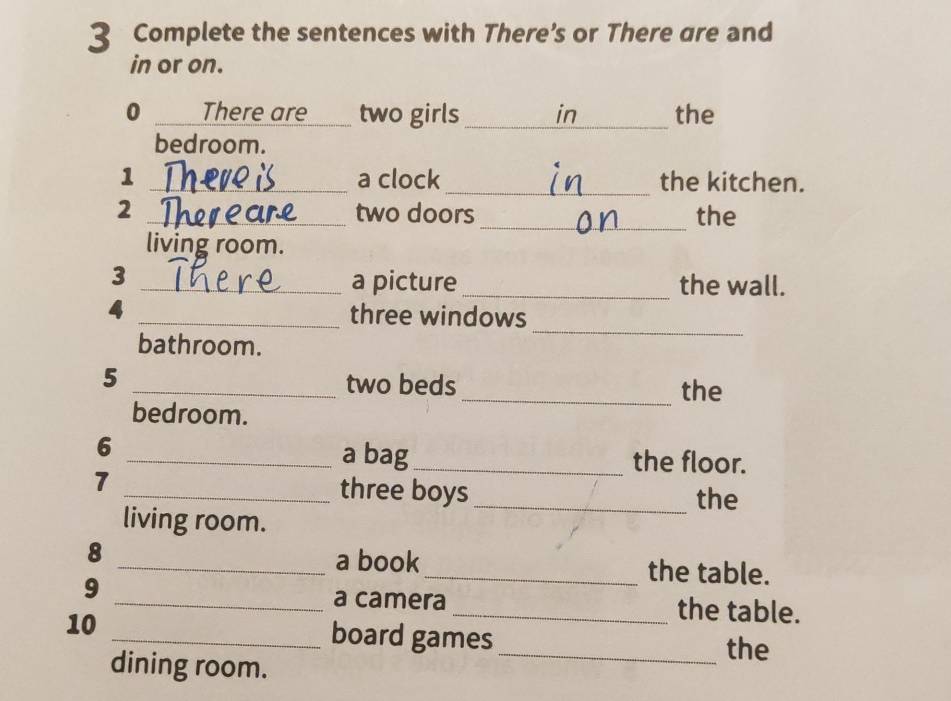 3 Complete the sentences with There's or There are and
in or on.
0 There are two girls in the
bedroom.
1 There is a clock in the kitchen.
2 There are two doors on the
living room.
3 There a picture the wall.
4 three windows
bathroom.
5 two beds the
bedroom.
6 a bag the floor.
7 three boys the
living room.
8 a book the table.
9 a camera the table.
10 board games the
dining room.